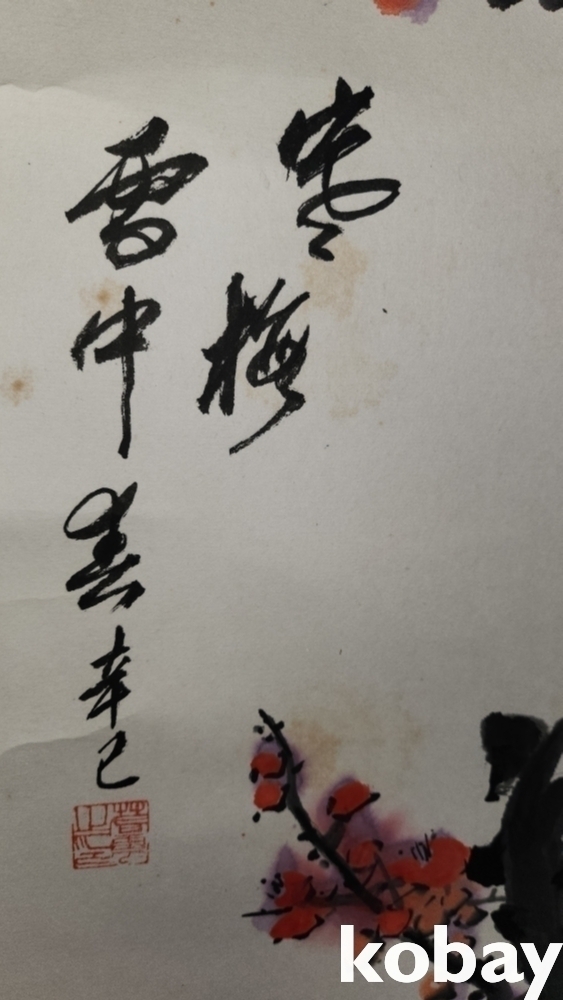 寒梅
雪中春辛巳
kobay